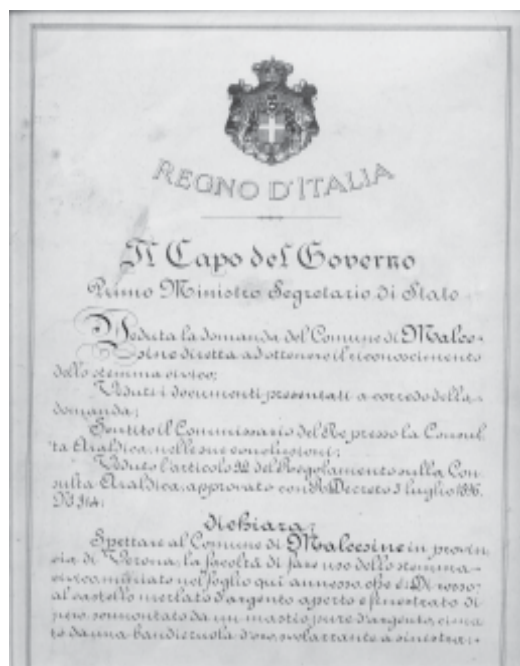 REGNO D'ITALIA
Il Capo del Governo
Primo Ministro Segretario di Stato
Veduta la domanda del Comune di Malce-
sine diretta ad ottenere il riconoscimento
dello stemma civico;
Veduti i documenti presentati a corredo della
domanda;
Sentito il Commissario del Re presso la Consul
ta Araldica, nelle sue conclusioni;
Veduto l'articolo del Regolamento sulla Con
sulta Araldica, approvato con R. Decreto 5 luglio 1896.
N. 314;
dichiara;
Spettare al Comune di Malcesine in provin
cia di Verona, la facoltà di fare uso dello stemma
civico miniato nel foglio qui annesso, che è: Di rosso;
al castello merlato d'argento aperto e finestrato di
nero, sormontato da un mastio, pure d'argento, cima
to da una bandieruola d'oro, svolazzante a sinistra;